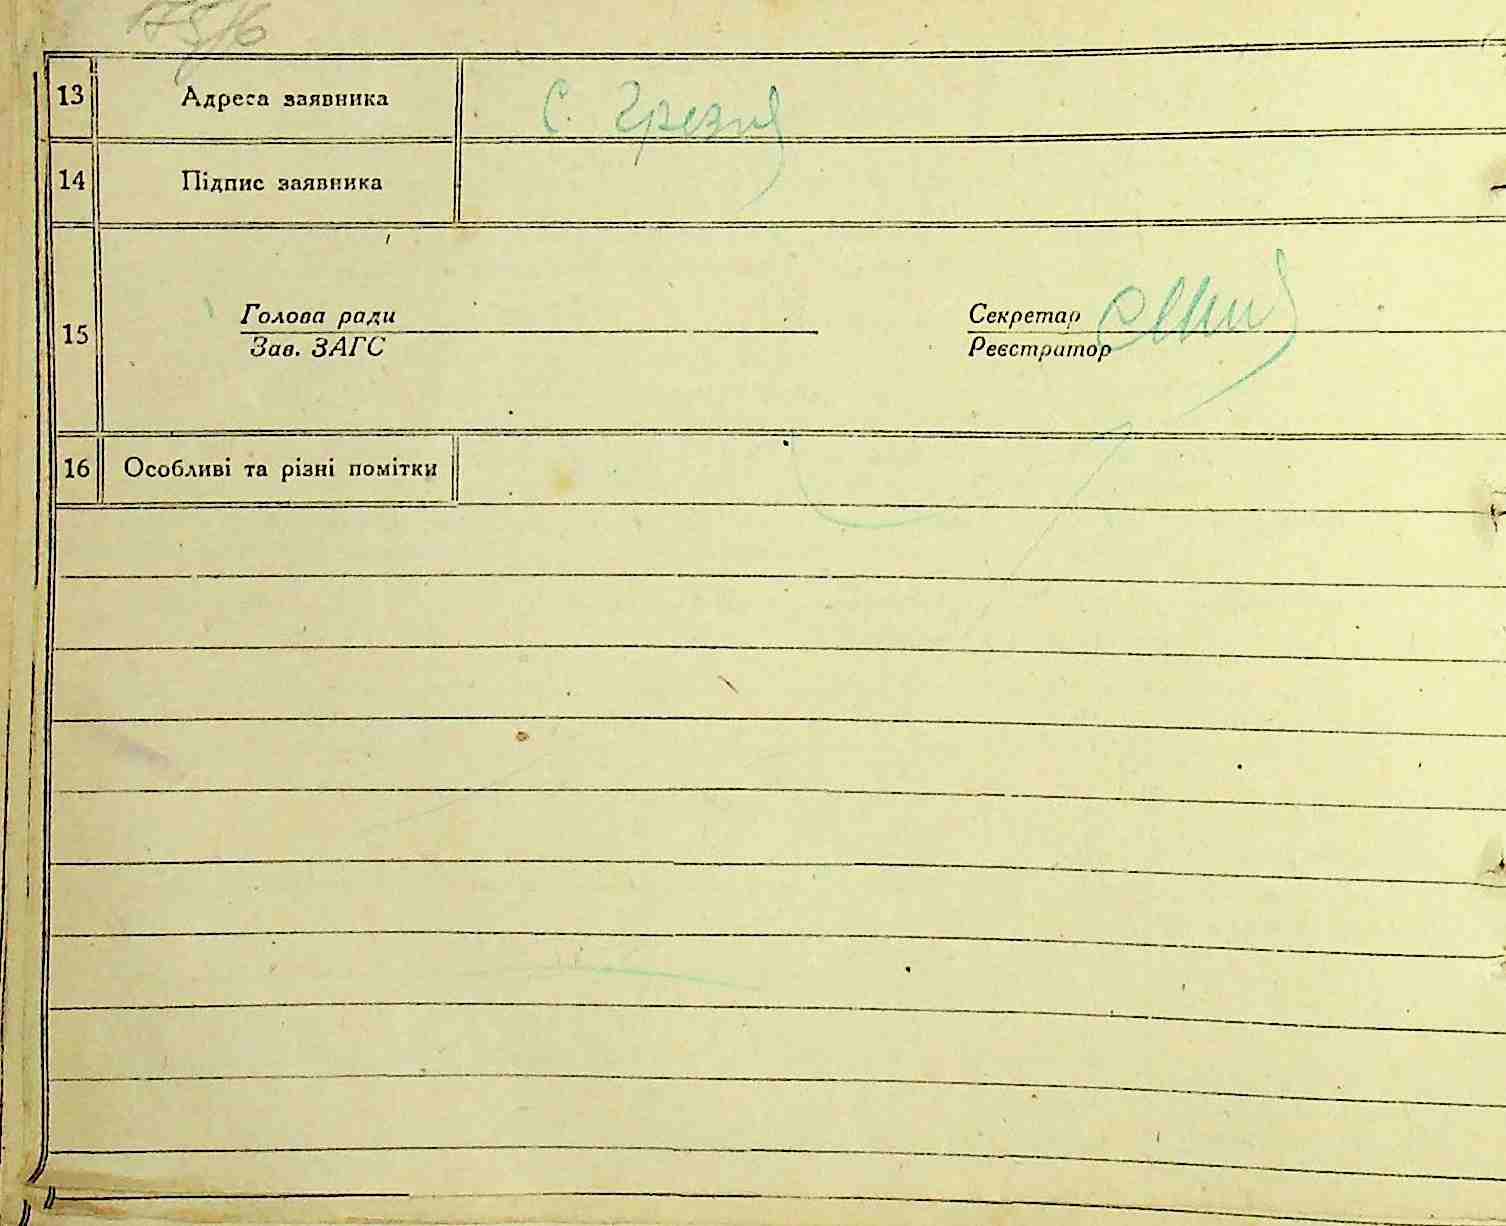 13 Адреса заявника с. Грезля
14 Підпис заявника
15 Голова ради Секретар
Зав. ЗАГС Реєстратор
16 Особливі та різні помітки